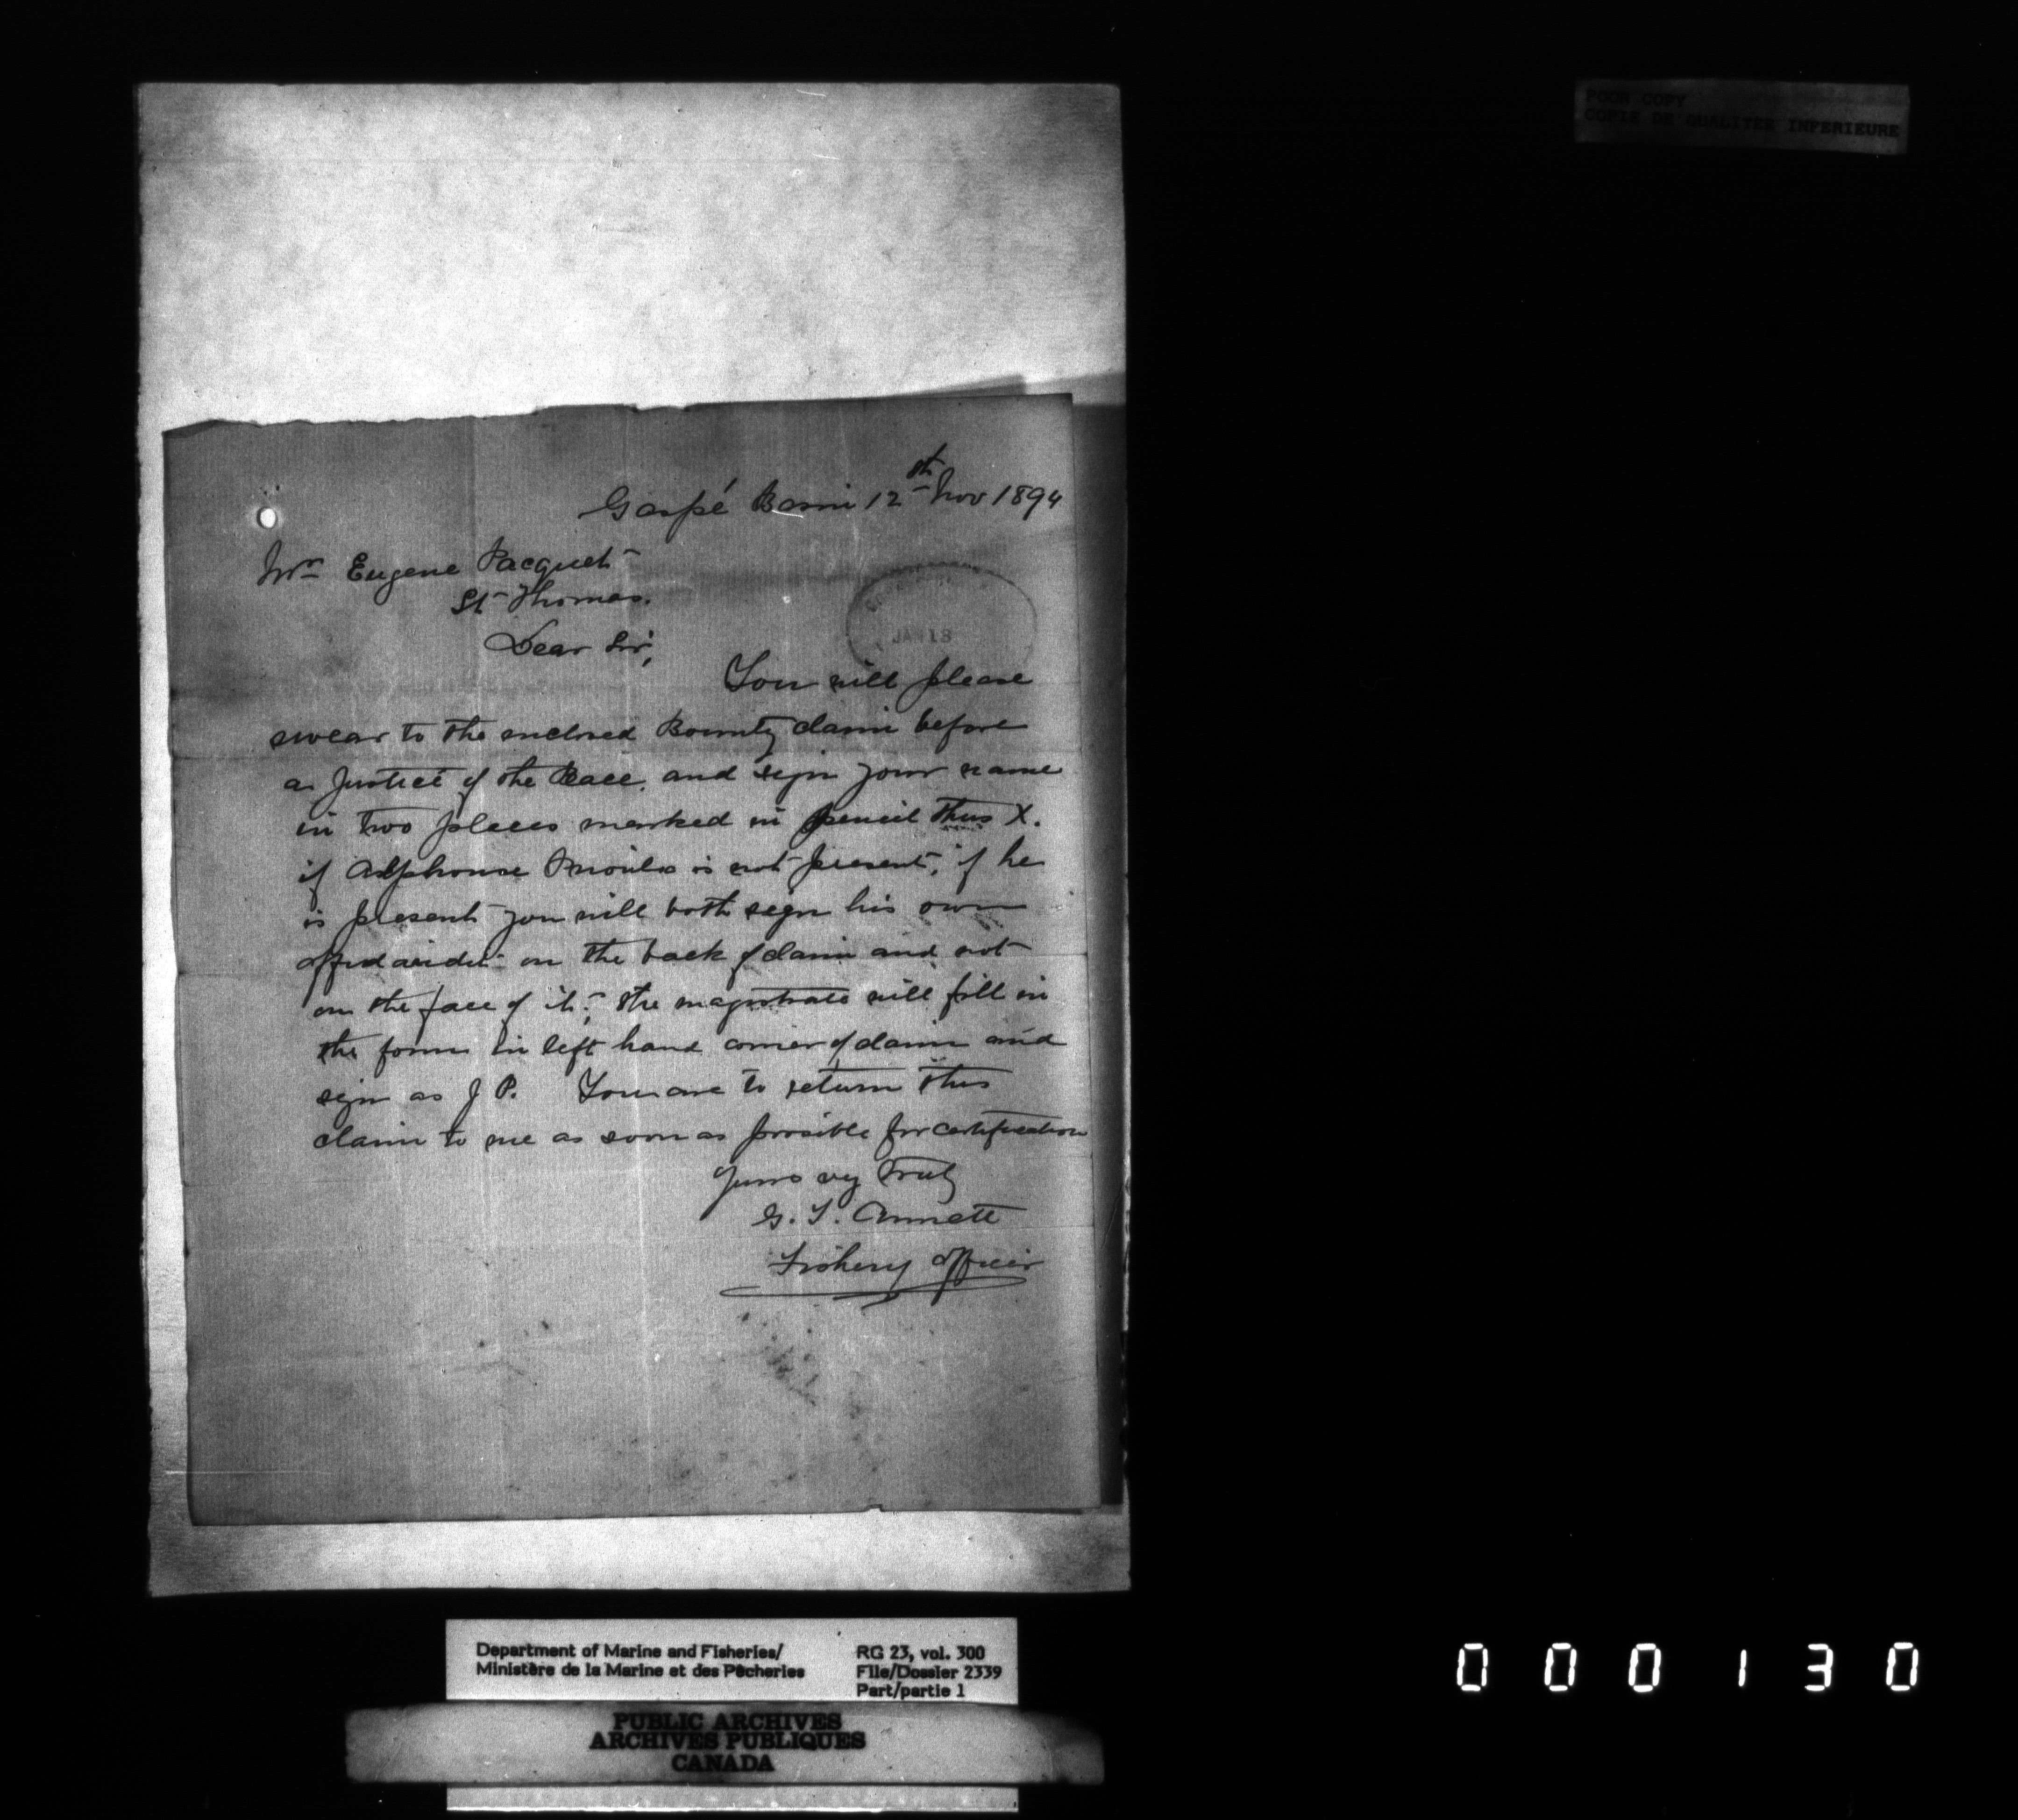 POOR COPY
COPIE DE QUALITEE INFERIEURE
Gaspé Basin 12th Nov 1894
Mr Eugene Pacquet
St Thomas.
Dear Sir,
You will please
swear to the enclosed Bounty claim before
a Justice of the Peace, and sign your name
in two places marked in pencil thus X.
if Alphonse is not present, if he
is present you will both sign his own
affidavidit on the back of claim and not
on the face of it; the magistrate will fill in
the form in left hand corner of claim and
sign as J P. You are to return this
claim to me as soon as possible for certification
Yours vy Truly
G. T. Annett
Fishery Officer
JAN 13
Department of Marine and Fisheries/
Ministère de la Marine et des Pêcheries
RG 23, vol. 300
File/Dossier 2339
Part/partie 1
PUBLIC ARCHIVES
ARCHIVES PUBLIQUES
CANADA
000130